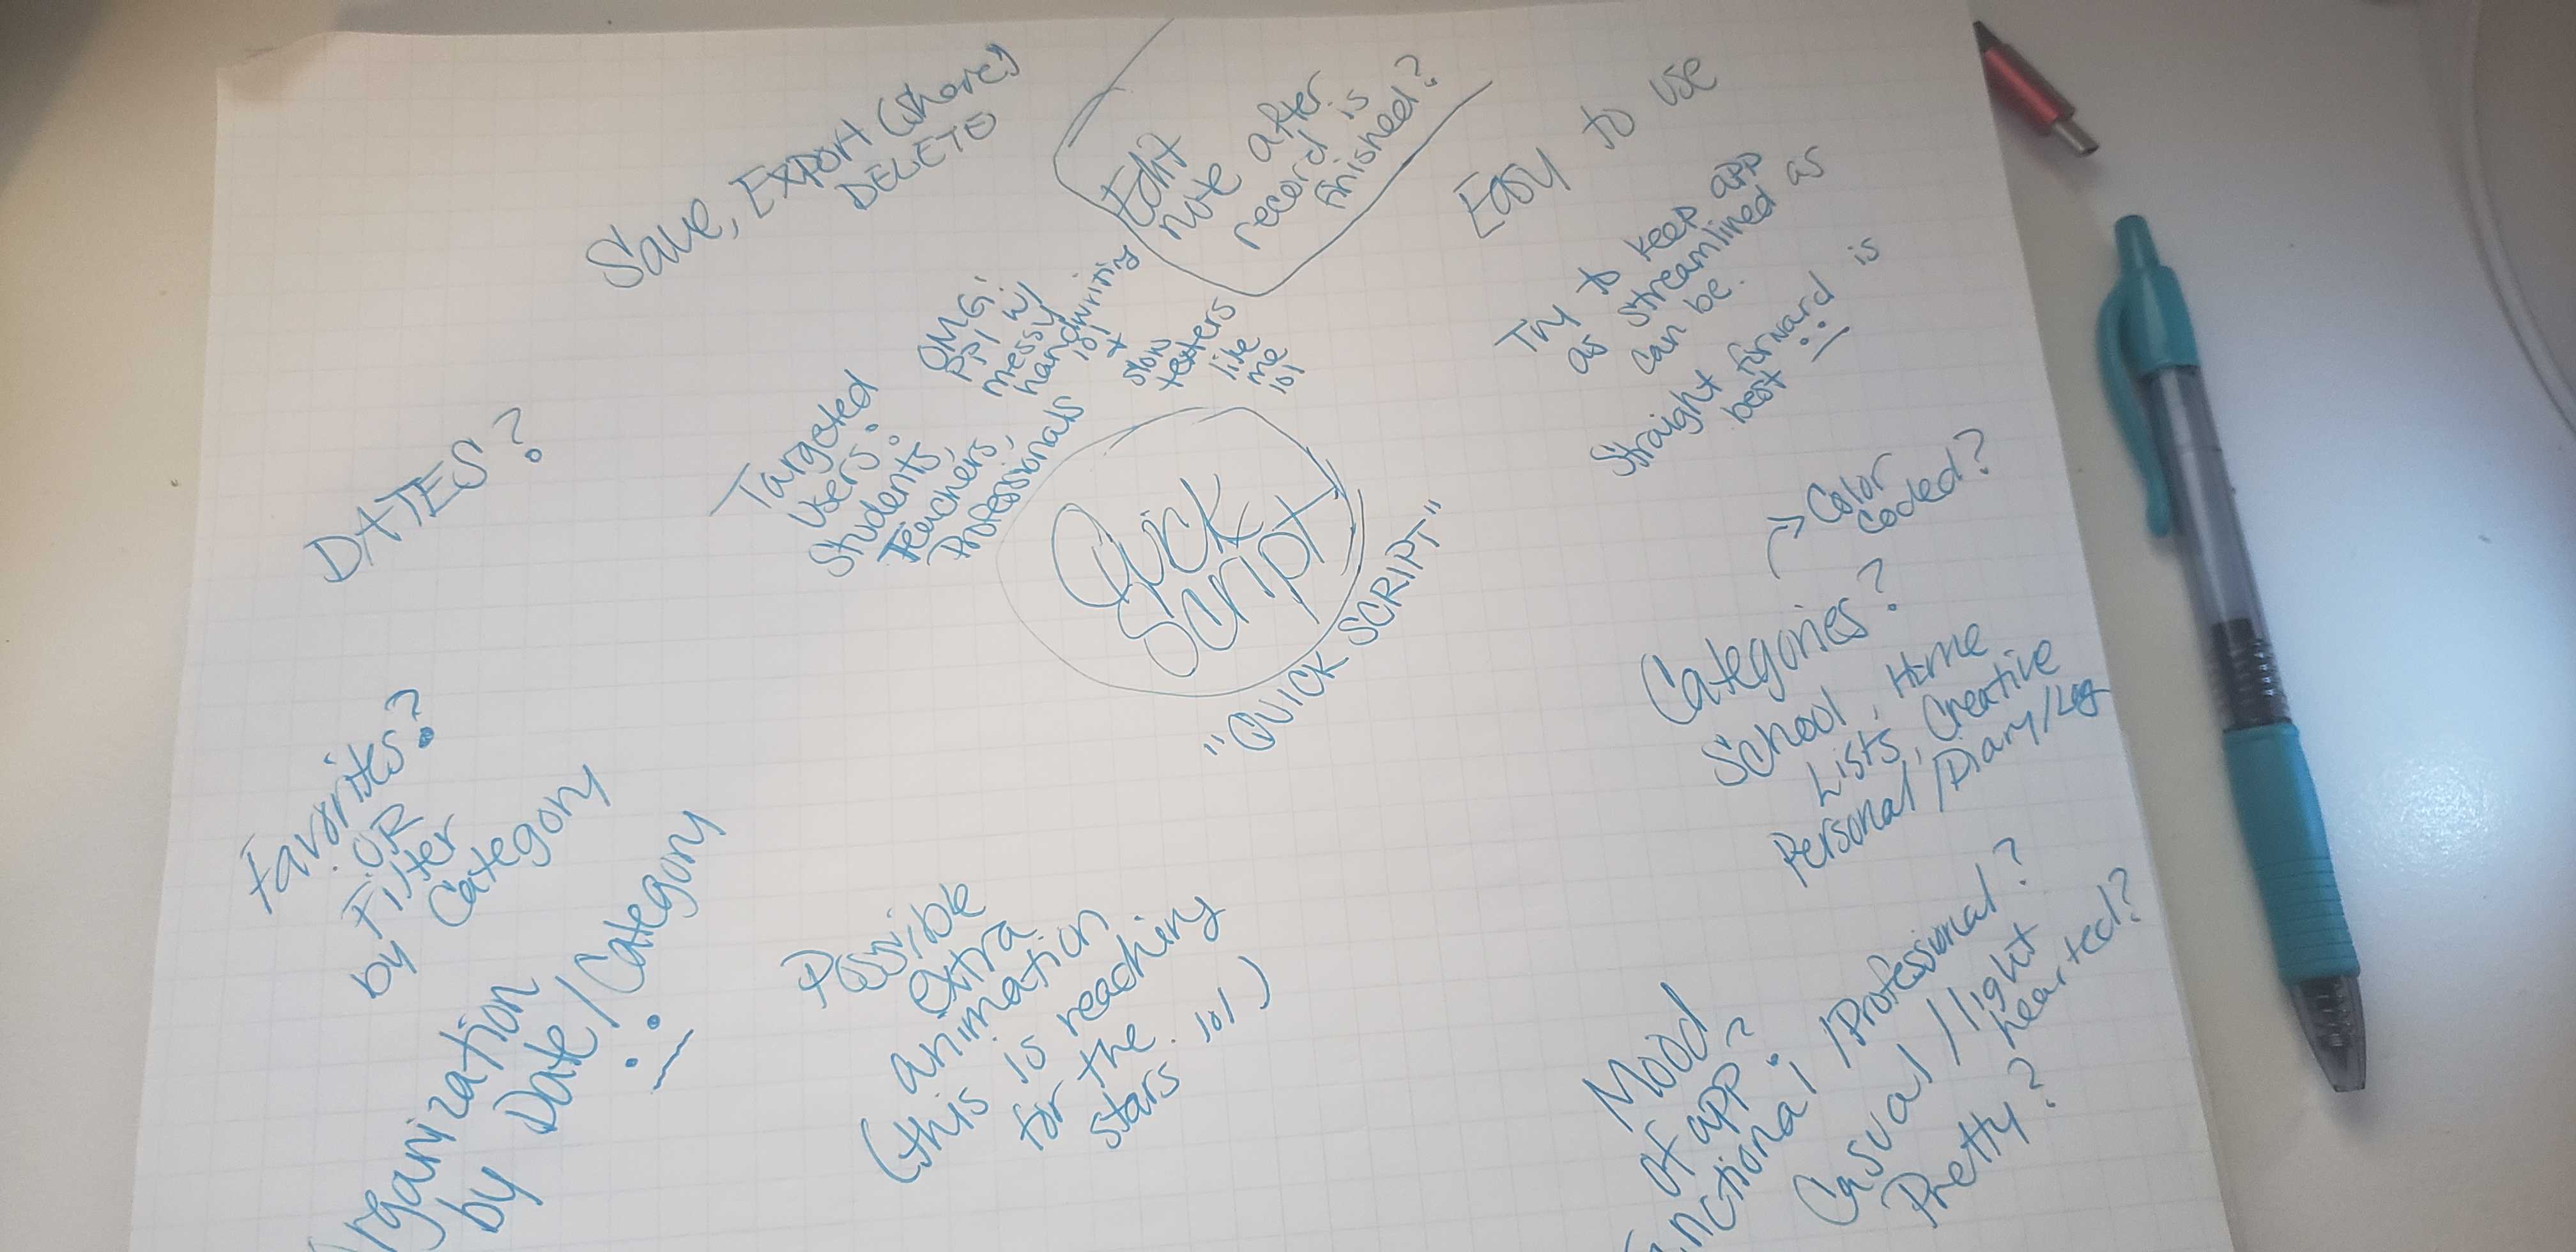 Save, EXPORT (share)
DELETE
Edit
note after
record is
finished?
Easy to use
Try to keep app
as streamlined as
can be.
Straight forward is
best
DATES?
Targeted
Users:
Students,
Teachers,
Professionals
OMG!
ppl w/
messy
handwriting
lol +
slow
texters
like
me
lol
Quick
Script
"QUICK SCRIPT"
Color
coded?
Categories?
School, Home
Lists, Creative
Personal/Diary/Log
Favorites?
OR
Filter
by Category
rganization
by Date/Category
Possible
extra
animation
(this is reaching
for the
stars lol)
Mood
of app?
nctional/Professional?
Casual/light
hearted?
Pretty?